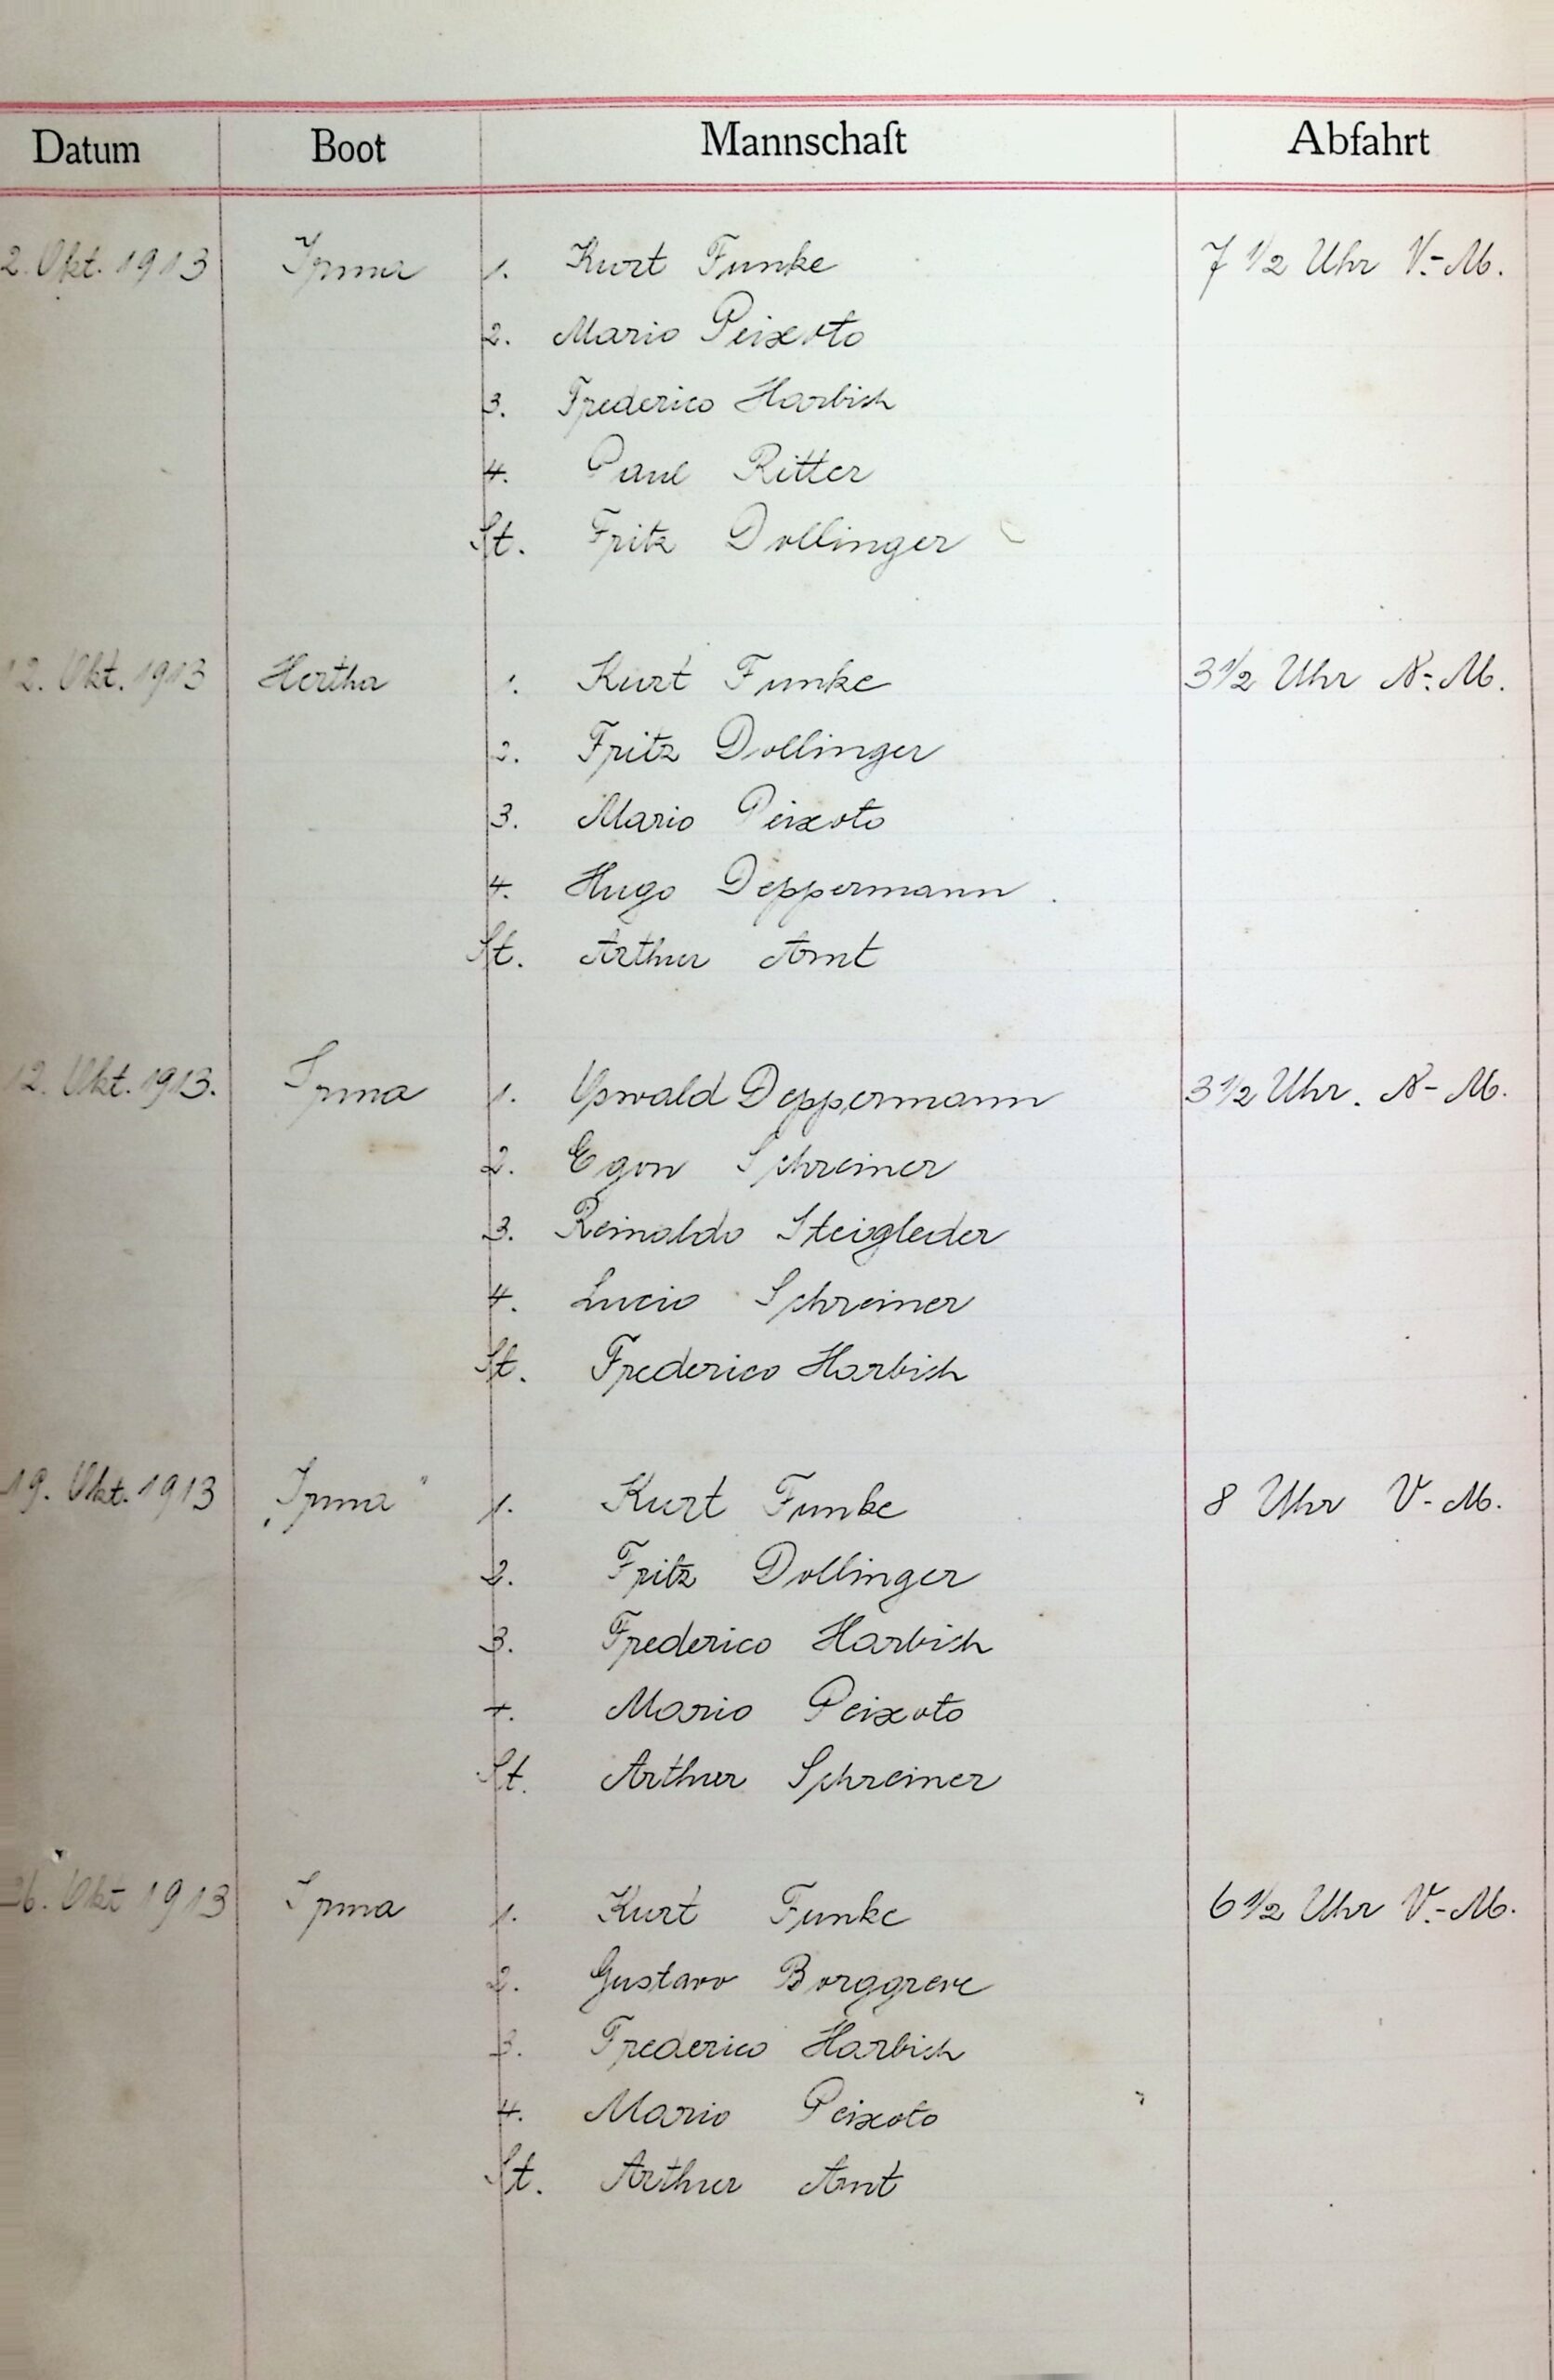 Datum Boot Mannschaft Abfahrt
2. Okt. 1913 Irma 1. Kurt Funke 7 1/2 Uhr V.-M.
2. Mario Peixoto
3. Frederico Harbich
4. Paul Ritter
St. Fritz Dollinger
12. Okt. 1913 Hertha 1. Kurt Funke 3 1/2 Uhr N.-M.
2. Fritz Dollinger
3. Mario Peixoto
4. Hugo Deppermann
St. Arthur Amt
12. Okt. 1913. Irma 1. Oswald Deppermann 3 1/2 Uhr. N-M.
2. Egon Schreiner
3. Reinaldo Steigleder
4. Lucio Schreiner
St. Frederico Harbich
19. Okt. 1913 „Irma" 1. Kurt Funke 8 Uhr V-M.
2. Fritz Dollinger
3. Frederico Harbich
4. Mario Peixoto
St. Arthur Schreiner
26. Okt 1913 Irma 1. Kurt Funke 6 1/2 Uhr V.-M.
2. Gustavo Borggreve
3. Frederico Harbich
4. Mario Peixoto
St. Arthur Amt